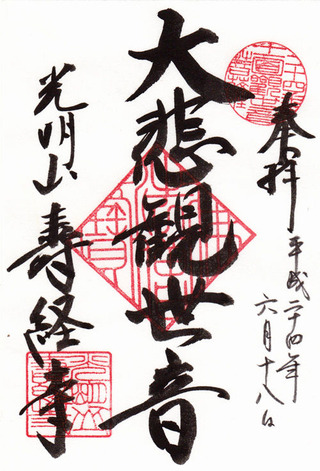 奉拝
平成二十四年
六月十八日
大悲観世音
光明山
壽経寺